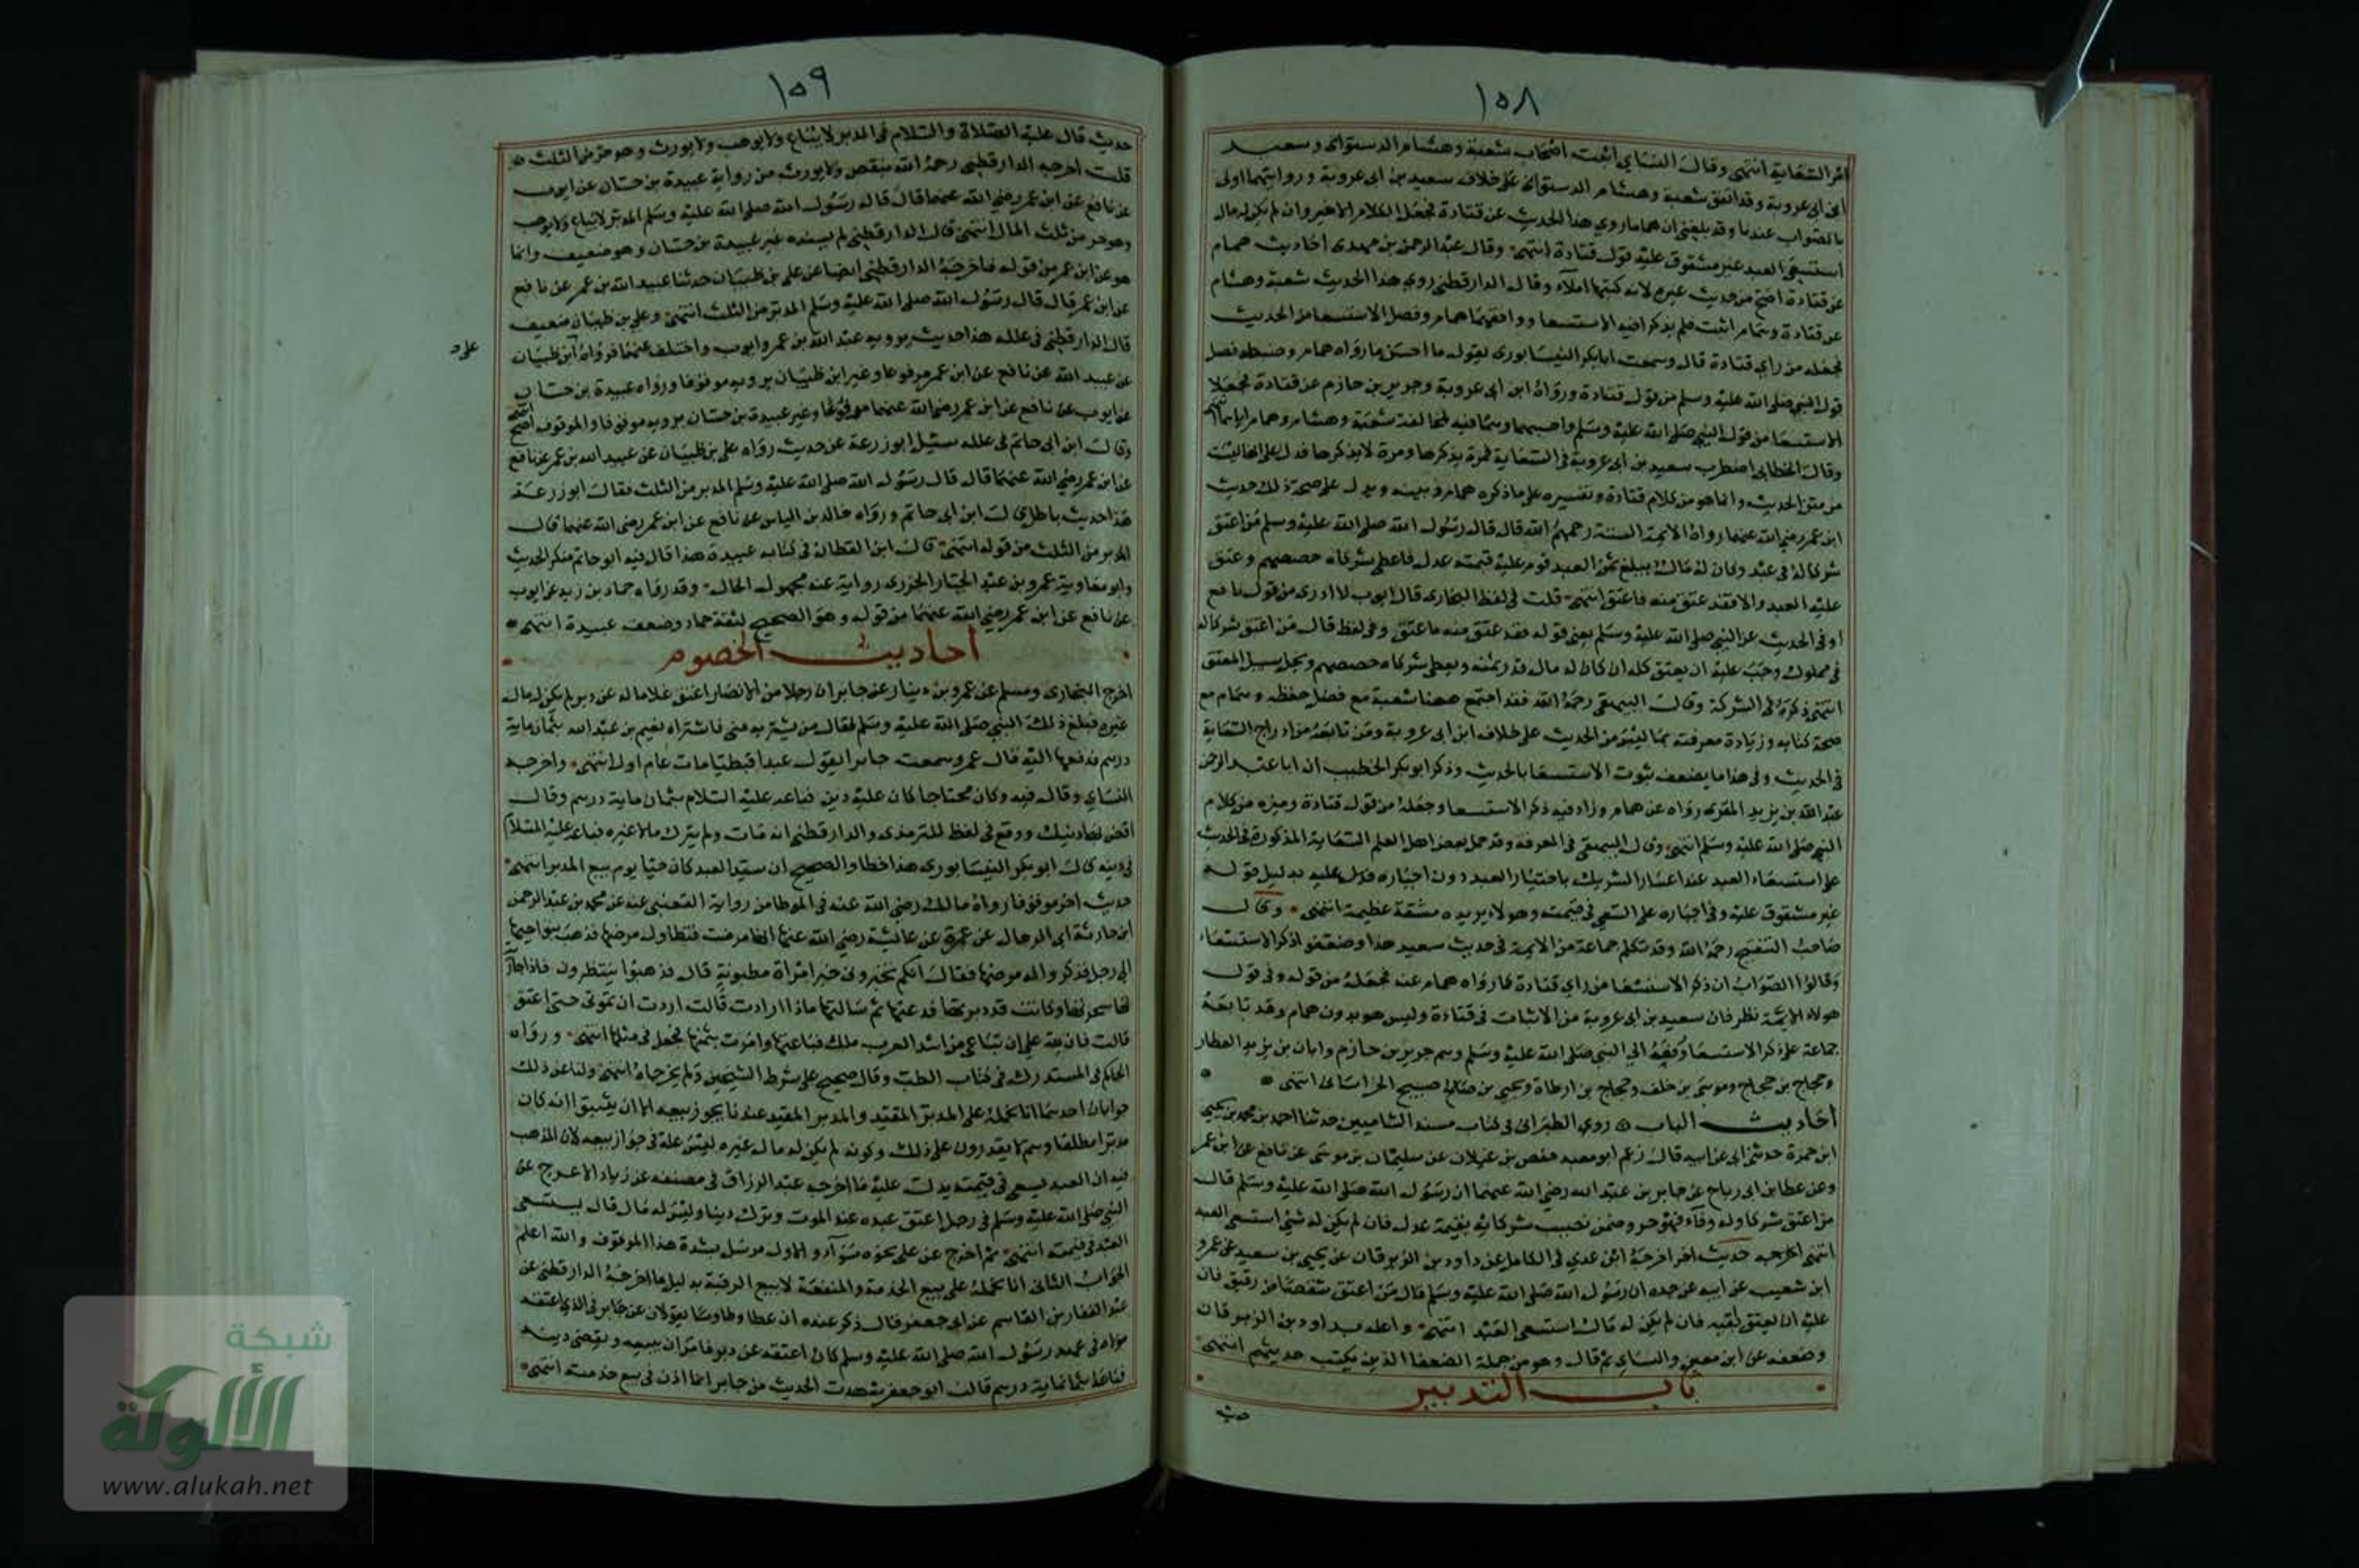 ١٥٨
امر السعاية انتهى وقال النساي اثبت اصحاب شعبة وهشام الدستواى وسعيد
ابن ابى عروبة وقد اتفق شعبة وهشام الدستواى على خلاف سعيد بن ابى عروبة وروايتهما اولى
بالصواب عندنا وقد بلغنى ان هماما روي هذا الحديث عن قتادة فجعل الكلام الاخير وان لم يكن له مال
استسعى العبد غير مشقوق عليه قول قتادة انتهى وقال عبد الرحمن بن مهدى احاديث همام
عن قتادة اصح من حديث غيره لانه كتبها املاء وقال الدارقطنى روي هذا الحديث شعبة وهشام
عن قتادة وهما اثبت فلم يذكرا فيه الاستسعا ووافقهما همام وفصل الاستسعا من الحديث
فجعله من راي قتادة قال وسمعت ابا بكر النيسابورى يقول ما احسن ما رواه همام وضبطه فصل
قول النبي صلى الله عليه وسلم من قول قتادة ورواه ابن ابى عروبة وجرير بن حازم عن قتادة فجعلا
الاستسعا من قول النبي صلى الله عليه وسلم واحسبهما وهما فيه لمخالفة شعبة وهشام وهمام اياهما
وقال الخطابى اضطرب سعيد بن ابى عروبة فى السعاية فمرة يذكرها ومرة لا يذكرها فدل على انها ليست
من متن الحديث وانما هو من كلام قتادة وتفسيره على ما ذكره همام وبينه ويدل على صحة ذلك حديث
ابن عمر رضي الله عنهما رواه الايمة الستة رحمهم الله قال قال رسول الله صلى الله عليه وسلم من اعتق
شركا له فى عبد وكان له مال يبلغ ثمن العبد قوم عليه قيمة عدل فاعطى شركاه حصصهم وعتق
عليه العبد والا فقد عتق منه ما عتق انتهى قلت فى لفظ البخارى قال ايوب لا ادرى من قول نافع
او فى الحديث عن النبي صلى الله عليه وسلم يعنى قوله فقد عتق منه ما عتق وفى لفظ قال من اعتق شركا له
فى مملوك وجب عليه ان يعتق كله ان كان له مال قدر ثمنه ويعطى شركاه حصصهم ويخلى سبيل المعتق
انتهى ذكره فى الشركة وقال البيهقى رحمه الله فقد اجتمع ههنا شعبة مع فضل حفظه وهمام مع
صحة كتابه وزيادة معرفته بما ليس من الحديث على خلاف ابن ابى عروبة ومن تابعه من ادراج السعاية
فى الحديث وفى هذا ما يضعف ثبوت الاستسعا بالحديث وذكر ابو بكر الخطيب ان ابا عبد الرحمن
عبد الله بن يزيد المقرى رواه عن همام وزاد فيه ذكر الاستسعا وجعله من قول قتادة وميزه من كلام
النبي صلى الله عليه وسلم انتهى وقال البيهقى فى المعرفة وقد حمل بعض اهل العلم السعاية المذكورة فى الحديث
على استسعاء العبد عند اعسار الشريك باختيار العبد دون اجباره فدل عليه بدليل قوله
غير مشقوق عليه وفى اجباره على السعي فى قيمته وهو لا يريده مشقة عظيمة انتهى وقال
صاحب التنقيح رحمه الله وقد تكلم جماعة من الايمة فى حديث سعيد هذا وضعفوا ذكر الاستسعاء
وقالوا الصواب ان ذكر الاستسعا من راي قتادة كما رواه همام عنه فجعله من قوله وفى قول
هولاء الايمة نظر فان سعيد بن ابى عروبة من الاثبات فى قتادة وليس هو بدون همام وقد تابعه
جماعة على ذكر الاستسعا ورفعه الى النبي صلى الله عليه وسلم وهم جرير بن حازم وابان بن يزيد العطار
وحجاج بن حجاج وموسى بن خلف وحجاج بن ارطاة ويحيى بن صبيح الخراسانى انتهى
احاديث الباب روى الطبرانى فى كتاب مسند الشاميين حدثنا احمد بن محمد بن يحيى
ابن حمزة حدثنى ابى عن ابيه قال زعم ابو معيد حفص بن غيلان عن سليمان بن موسى عن نافع عن ابن عمر
وعن عطا بن ابى رباح عن جابر بن عبد الله رضي الله عنهما ان رسول الله صلى الله عليه وسلم قال
من اعتق شركا وله وفاء فهو حر وضمن نصيب شركايه بقيمة عدل فان لم يكن له شئ استسعى العبد
انتهى حديث اخر اخرجه ابن عدي فى الكامل عن داود بن الزبرقان عن يحيى بن سعيد عن عمرو
ابن شعيب عن ابيه عن جده ان رسول الله صلى الله عليه وسلم قال من اعتق شقصا من رقيق فان
عليه ان يعتق بقيته فان لم يكن له مال استسعى العبد انتهى واعله بداود بن الزبرقان
وضعفه عن ابن معين والنساي ثم قال وهو من جملة الضعفا الذين يكتب حديثهم انتهى
باب التدبير
حديث
١٥٩
حديث قال عليه الصلاة والسلام فى المدبر لا يباع ولا يوهب ولا يورث وهو حر من الثلث
قلت اخرجه الدارقطنى رحمه الله بنقص ولا يورث من رواية عبيدة بن حسان عن ايوب
عن نافع عن ابن عمر رضي الله عنهما قال قال رسول الله صلى الله عليه وسلم المدبر لا يباع ولا يوهب
وهو حر من ثلث المال انتهى قال الدارقطنى لم يسنده غير عبيدة بن حسان وهو ضعيف وانما
هو عن ابن عمر من قوله فاخرجه الدارقطنى ايضا عن على بن ظبيان حدثنا عبيد الله بن عمر عن نافع
عن ابن عمر قال قال رسول الله صلى الله عليه وسلم المدبر من الثلث انتهى وعلي بن ظبيان ضعيف
قال الدارقطنى فى علله هذا حديث يرويه عبيد الله بن عمر وايوب واختلف عنهما فرواه ابن ظبيان
عن عبيد الله عن نافع عن ابن عمر مرفوعا وغير ابن ظبيان يرويه موقوفا ورواه عبيدة بن حسان
عن ايوب عن نافع عن ابن عمر رضي الله عنهما مرفوعا وغير عبيدة بن حسان يرويه موقوفا والموقوف اصح انتهى
وقال ابن ابى حاتم فى علله سئل ابو زرعة عن حديث رواه على بن ظبيان عن عبيد الله بن عمر عن نافع
عن ابن عمر رضي الله عنهما قال قال رسول الله صلى الله عليه وسلم المدبر من الثلث فقال ابو زرعة
هذا حديث باطل قال ابن ابى حاتم ورواه خالد بن الياس عن نافع عن ابن عمر رضي الله عنهما قال
المدبر من الثلث من قوله انتهى قال ابن القطان فى كتابه عبيدة هذا قال فيه ابو حاتم منكر الحديث
وابو معاوية عمرو بن عبد الجبار الجزرى رواية عنه مجهول الحال وقد رواه حماد بن زيد عن ايوب
عن نافع عن ابن عمر رضي الله عنهما من قوله وهو الصحيح لثقة حماد وضعف عبيدة انتهى
احاديث الخصوم
اخرج البخارى ومسلم عن عمرو بن دينار عن جابر ان رجلا من الانصار اعتق غلاما له عن دبر لم يكن له مال
غيره فبلغ ذلك النبي صلى الله عليه وسلم فقال من يشتريه منى فاشتراه نعيم بن عبد الله بثمان ماية
درهم فدفعها اليه قال عمرو سمعت جابرا يقول عبدا قبطيا مات عام اول انتهى واخرجه
النساي وقال فيه وكان محتاجا كان عليه دين فباعه عليه السلام بثمان ماية درهم وقال
اقض بها دينك ووقع فى لفظ للترمذى والدارقطنى انه مات ولم يترك مالا غيره فباعه عليه السلام
فى دينه قال ابو بكر النيسابورى هذا خطا والصحيح ان سيد العبد كان حيا يوم بيع المدبر انتهى
حديث اخر موقوف رواه مالك رضي الله عنه فى الموطا من رواية القعنبى عنه عن محمد بن عبد الرحمن
ابن حارثة ابى الرجال عن عمرة عن عائشة رضي الله عنها انها مرضت فتطاول مرضها فذهب بنو اخيها
الى رجل فذكروا له مرضها فقال انكم تخبرونى خبر امراة مطبوبة قال فذهبوا ينتظرون فاذا جارية
لها سحرتها وكانت قد دبرتها فدعتها ثم سالتها ماذا اردت قالت اردت ان تموتى حتى اعتق
قالت فان لله على ان تباعى من اشد العرب ملكة فباعتها وامرت بثمنها فجعل فى مثلها انتهى ورواه
الحاكم فى المستدرك فى كتاب الطب وقال صحيح على شرط الشيخين ولم يخرجاه انتهى ولنا عن ذلك
جوابان احدهما انا نحمله على المدبر المقيد والمدبر المقيد عندنا يجوز بيعه الا ان يثبتوا انه كان
مدبرا مطلقا وهم لا يقدرون على ذلك وكونه لم يكن له مال غيره ليس علة فى جواز بيعه لان المذهب
فيه ان العبد يسعى فى قيمته يدل عليه ما اخرجه عبد الرزاق فى مصنفه عن زياد الاعرج عن
النبي صلى الله عليه وسلم فى رجل اعتق عبده عند الموت وترك دينا وليس له مال قال يستسعى
العبد فى قيمته انتهى ثم اخرج عن على نحوه سواء والاول مرسل يشده هذا الموقوف والله اعلم
الجواب الثانى انا نحمله على بيع الخدمة والمنفعة لا بيع الرقبة بدليل ما اخرجه الدارقطنى عن
عبد الغفار بن القاسم عن ابى جعفر قال ذكر عنده ان عطا وطاوسا يقولان عن جابر فى الذي اعتقه
مولاه فى عهد رسول الله صلى الله عليه وسلم كان اعتقه عن دبر فامر ان يبيعه ويقضى دينه
فباعه بثمانماية درهم قال ابو جعفر شهدت الحديث من جابر انما اذن فى بيع خدمته انتهى
شبكة
الألوكة
www.alukah.net